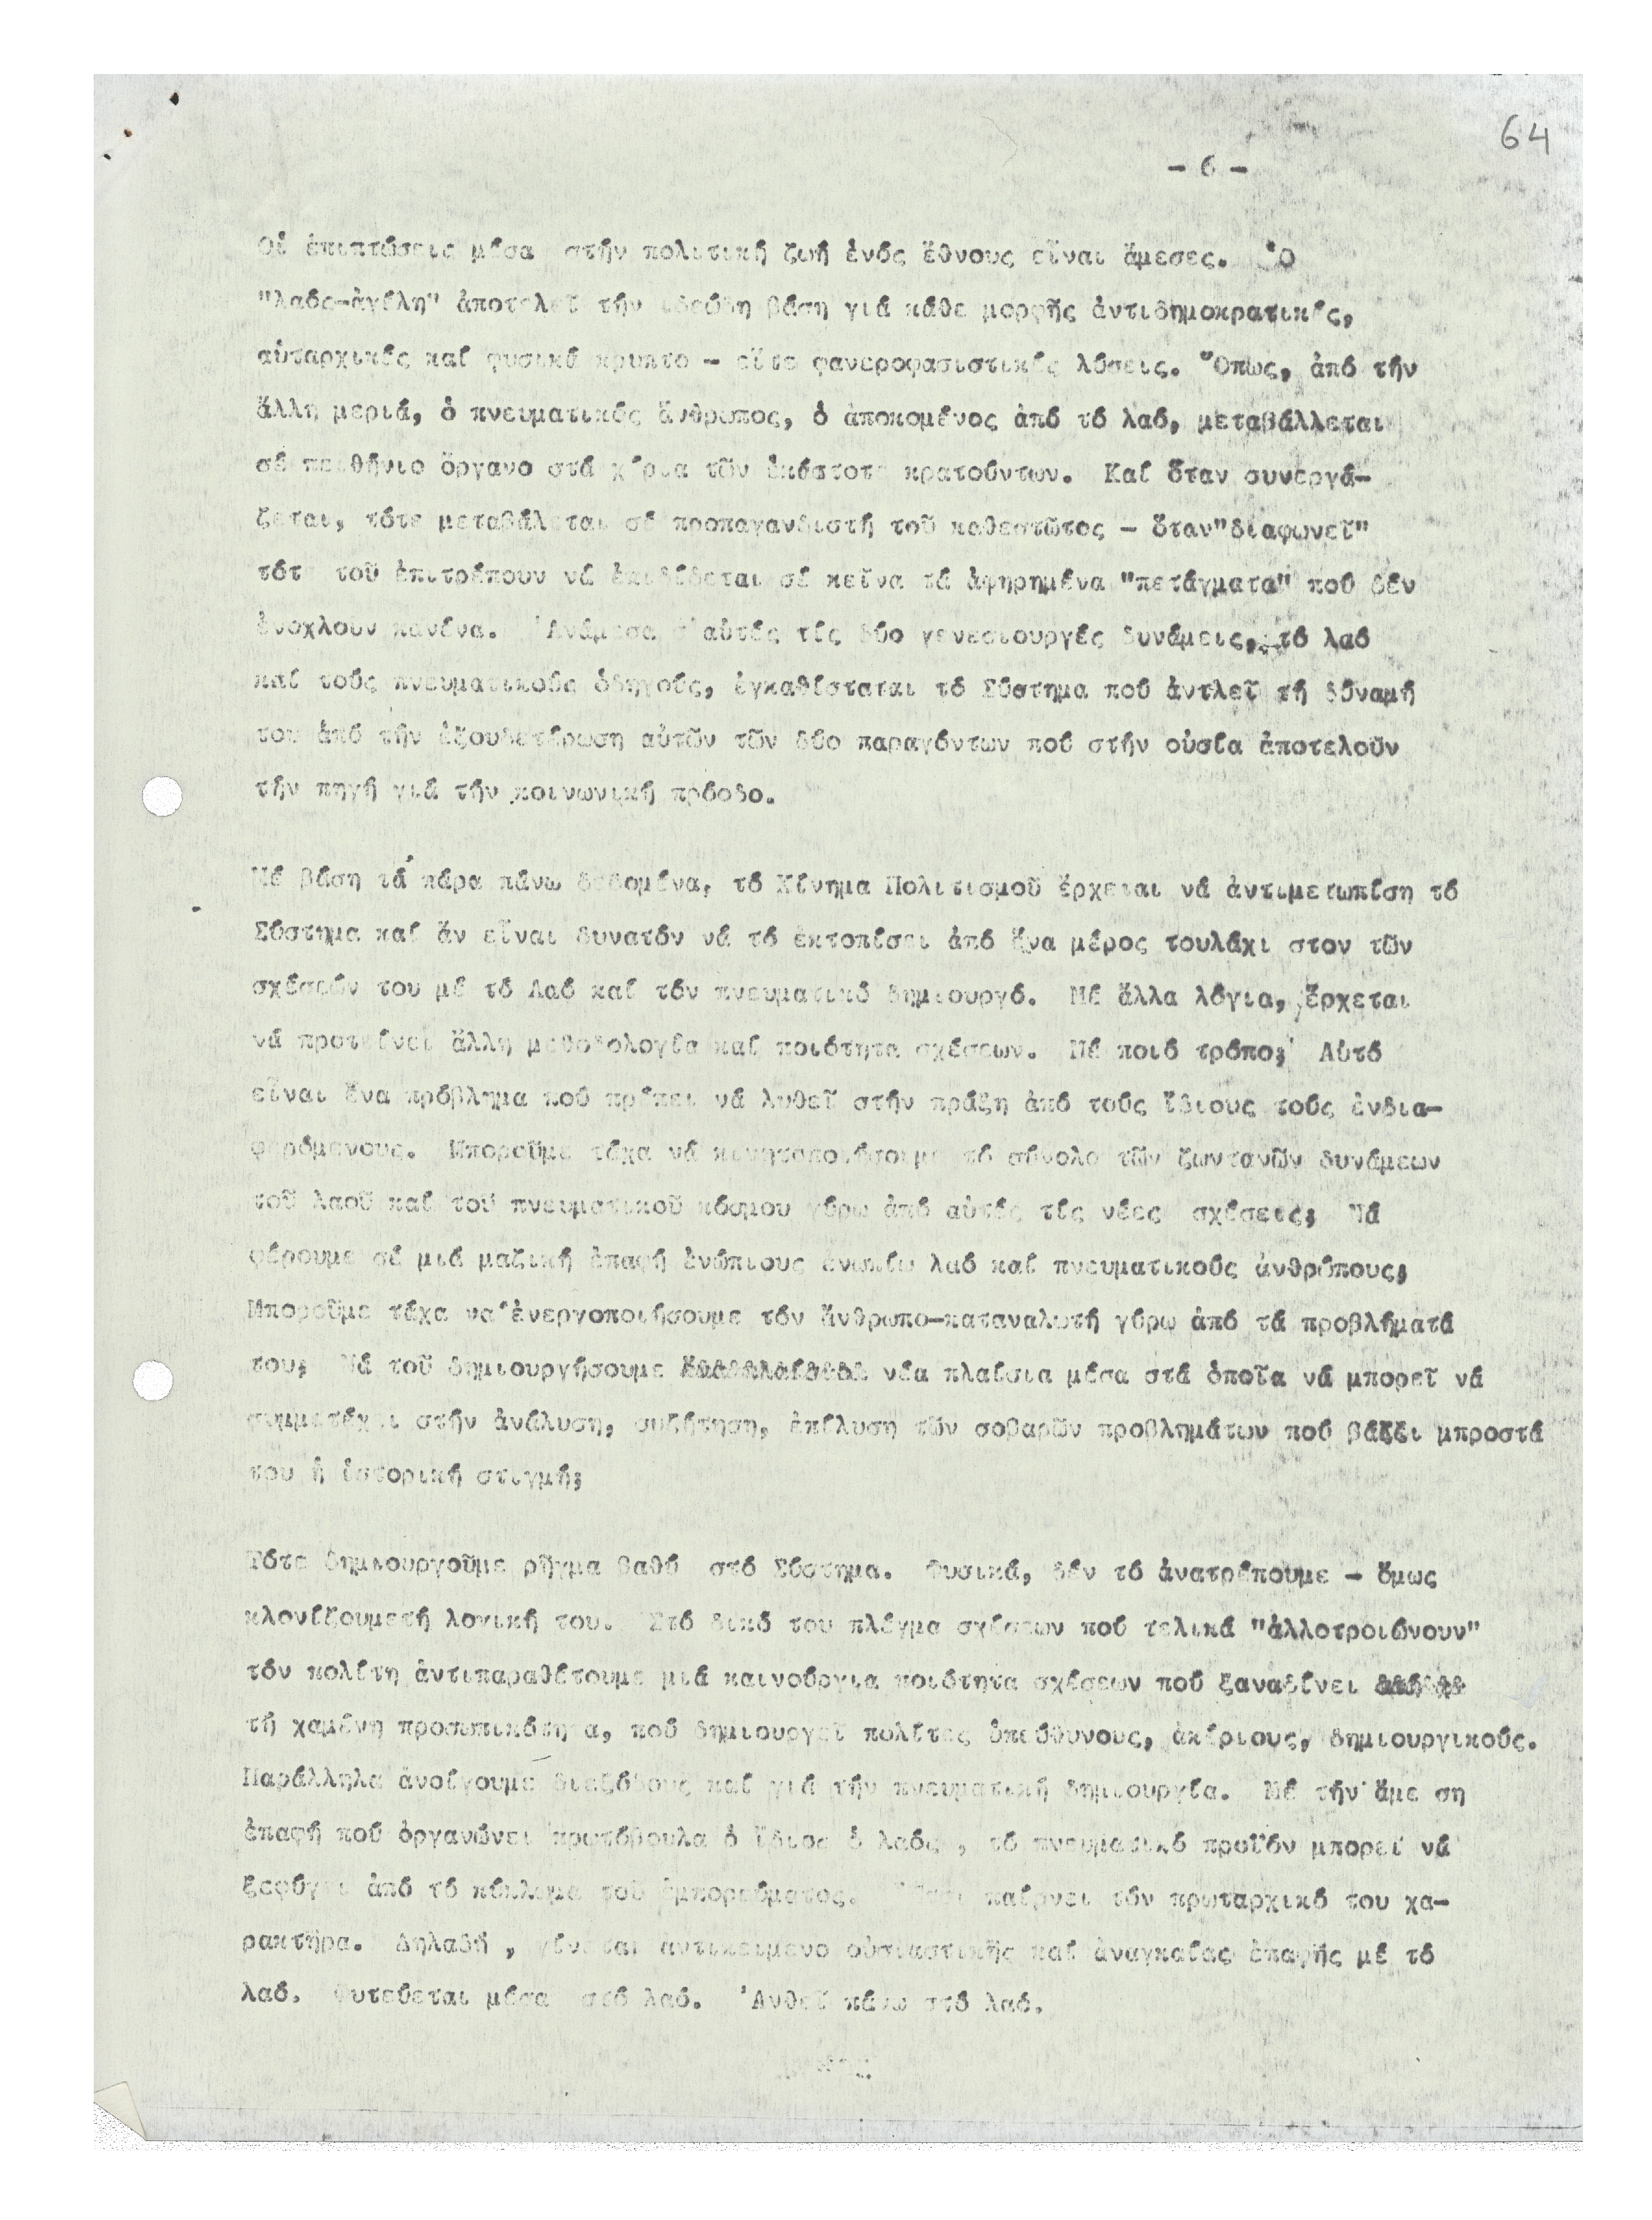 64
- 6 -
Οἱ ἐπιπτώσεις μέσα στήν πολιτική ζωή ἑνός ἔθνους εἶναι ἄμεσες. Ὁ
"λαός-ἀγέλη" ἀποτελεῖ τήν ἰδεώδη βάση γιά κάθε μορφῆς ἀντιδημοκρατικές,
αὐταρχικές καί φυσικά κρυπτο - εἴτε φανεροφασιστικές λύσεις. Ὅπως, ἀπό τήν
ἄλλη μεριά, ὁ πνευματικός ἄνθρωπος, ὁ ἀποκομένος ἀπό τό λαό, μεταβάλλεται
σέ πειθήνιο ὄργανο στά χέρια τῶν ἑκάστοτε κρατούντων. Καί ὅταν συνεργά-
ζεται, τότε μεταβάλεται σέ προπαγανδιστή τοῦ καθεστῶτος - ὅταν"διαφωνεῖ"
τότ τοῦ ἐπιτρέπουν νά ἐπιδίδεται σέ κεῖνα τά ἀφηρημένα "πετάγματα" πού δέν
ἐνοχλοῦν κανένα. Ἀνάμεσα σ'αὐτές τίς δύο γενεσιουργές δυνάμεις, τό λαό
καί τούς πνευματικούς ὁδηγούς, ἐγκαθίσταται τό Σύστημα πού ἀντλεῖ τή δύναμή
του ἀπό τήν ἐξουδετέρωση αὐτῶν τῶν δύο παραγόντων πού στήν οὐσία ἀποτελοῦν
τήν πηγή γιά τήν κοινωνική πρόοδο.
Μέ βάση τά πάρα πάνω δεδομένα, τό Κίνημα Πολιτισμοῦ ἔρχεται νά ἀντιμετωπίση τό
Σύστημα καί ἄν εἶναι δυνατόν νά τό ἐκτοπίσει ἀπό ἕνα μέρος τουλάχι στον τῶν
σχέσεών του μέ τό Λαό καί τόν πνευματικό δημιουργό. Μέ ἄλλα λόγια, ἔρχεται
νά προτείνει ἄλλη μεθοδολογία καί ποιότητα σχέσεων. Μέ ποιό τρόπο; Αὐτό
εἶναι ἕνα πρόβλημα πού πρέπει νά λυθεῖ στήν πράξη ἀπό τούς ἴδιους τούς ἐνδια-
φερόμενους. Μποροῦμε τάχα νά κινητοποιήσουμε τό σύνολο τῶν ζωντανῶν δυνάμεων
τοῦ λαοῦ καί τοῦ πνευματικοῦ κόσμου γύρω ἀπό αὐτές τίς νέες σχέσεις; Νά
φέρουμε σέ μιά μαζική ἐπαφή ἐνώπιους ἐνωπίω λαό καί πνευματικούς ἀνθρώπους;
Μποροῦμε τάχα νά ἐνεργοποιήσουμε τόν ἄνθρωπο-καταναλωτή γύρω ἀπό τά προβλήματά
του; Νά τοῦ δημιουργήσουμε νέα πλαίσια μέσα στά ὁποῖα νά μπορεῖ νά
συμμετέχει στήν ἀνάλυση, συζήτηση, ἐπίλυση τῶν σοβαρῶν προβλημάτων πού βάζει μπροστά
του ἡ ἱστορική στιγμή;
Τότε δημιουργοῦμε ρῆγμα βαθύ στό Σύστημα. Φυσικά, δέν τό ἀνατρέπουμε - ὅμως
κλονίζουμετή λογική του. Στό δικό του πλέγμα σχέσεων πού τελικά "ἀλλοτροιώνουν"
τόν πολίτη ἀντιπαραθέτουμε μιά καινούργια ποιότητα σχέσεων πού ξαναδίνει
τή χαμένη προσωπικότητ α, πού δημιουργεῖ πολίτες ὑπεύθυνους, ἀκέριους, δημιουργικούς.
Παράλληλα ἀνοίγουμε διεξόδους καί γιά τήν πνευματική δημιουργία. Μέ τήν ἄμε ση
ἐπαφή πού ὀργανώνει πρωτόβουλα ὁ ἴδιος ὁ λαός , τό πνευματικό προϊόν μπορεῖ νά
ξεφύγει ἀπό τό κύκλωμα τοῦ ἐμπορεύματος. παίρνει τόν πρωταρχικό του χα-
ρακτήρα. Δηλαδή , γίνεται αντικείμενο οὐσιαστικῆς καί ἀναγκαίας ἐπαφῆς μέ τό
λαό. Φυτεύεται μέσα στό λαό. Ἀνθεῖ πάνω στό λαό.